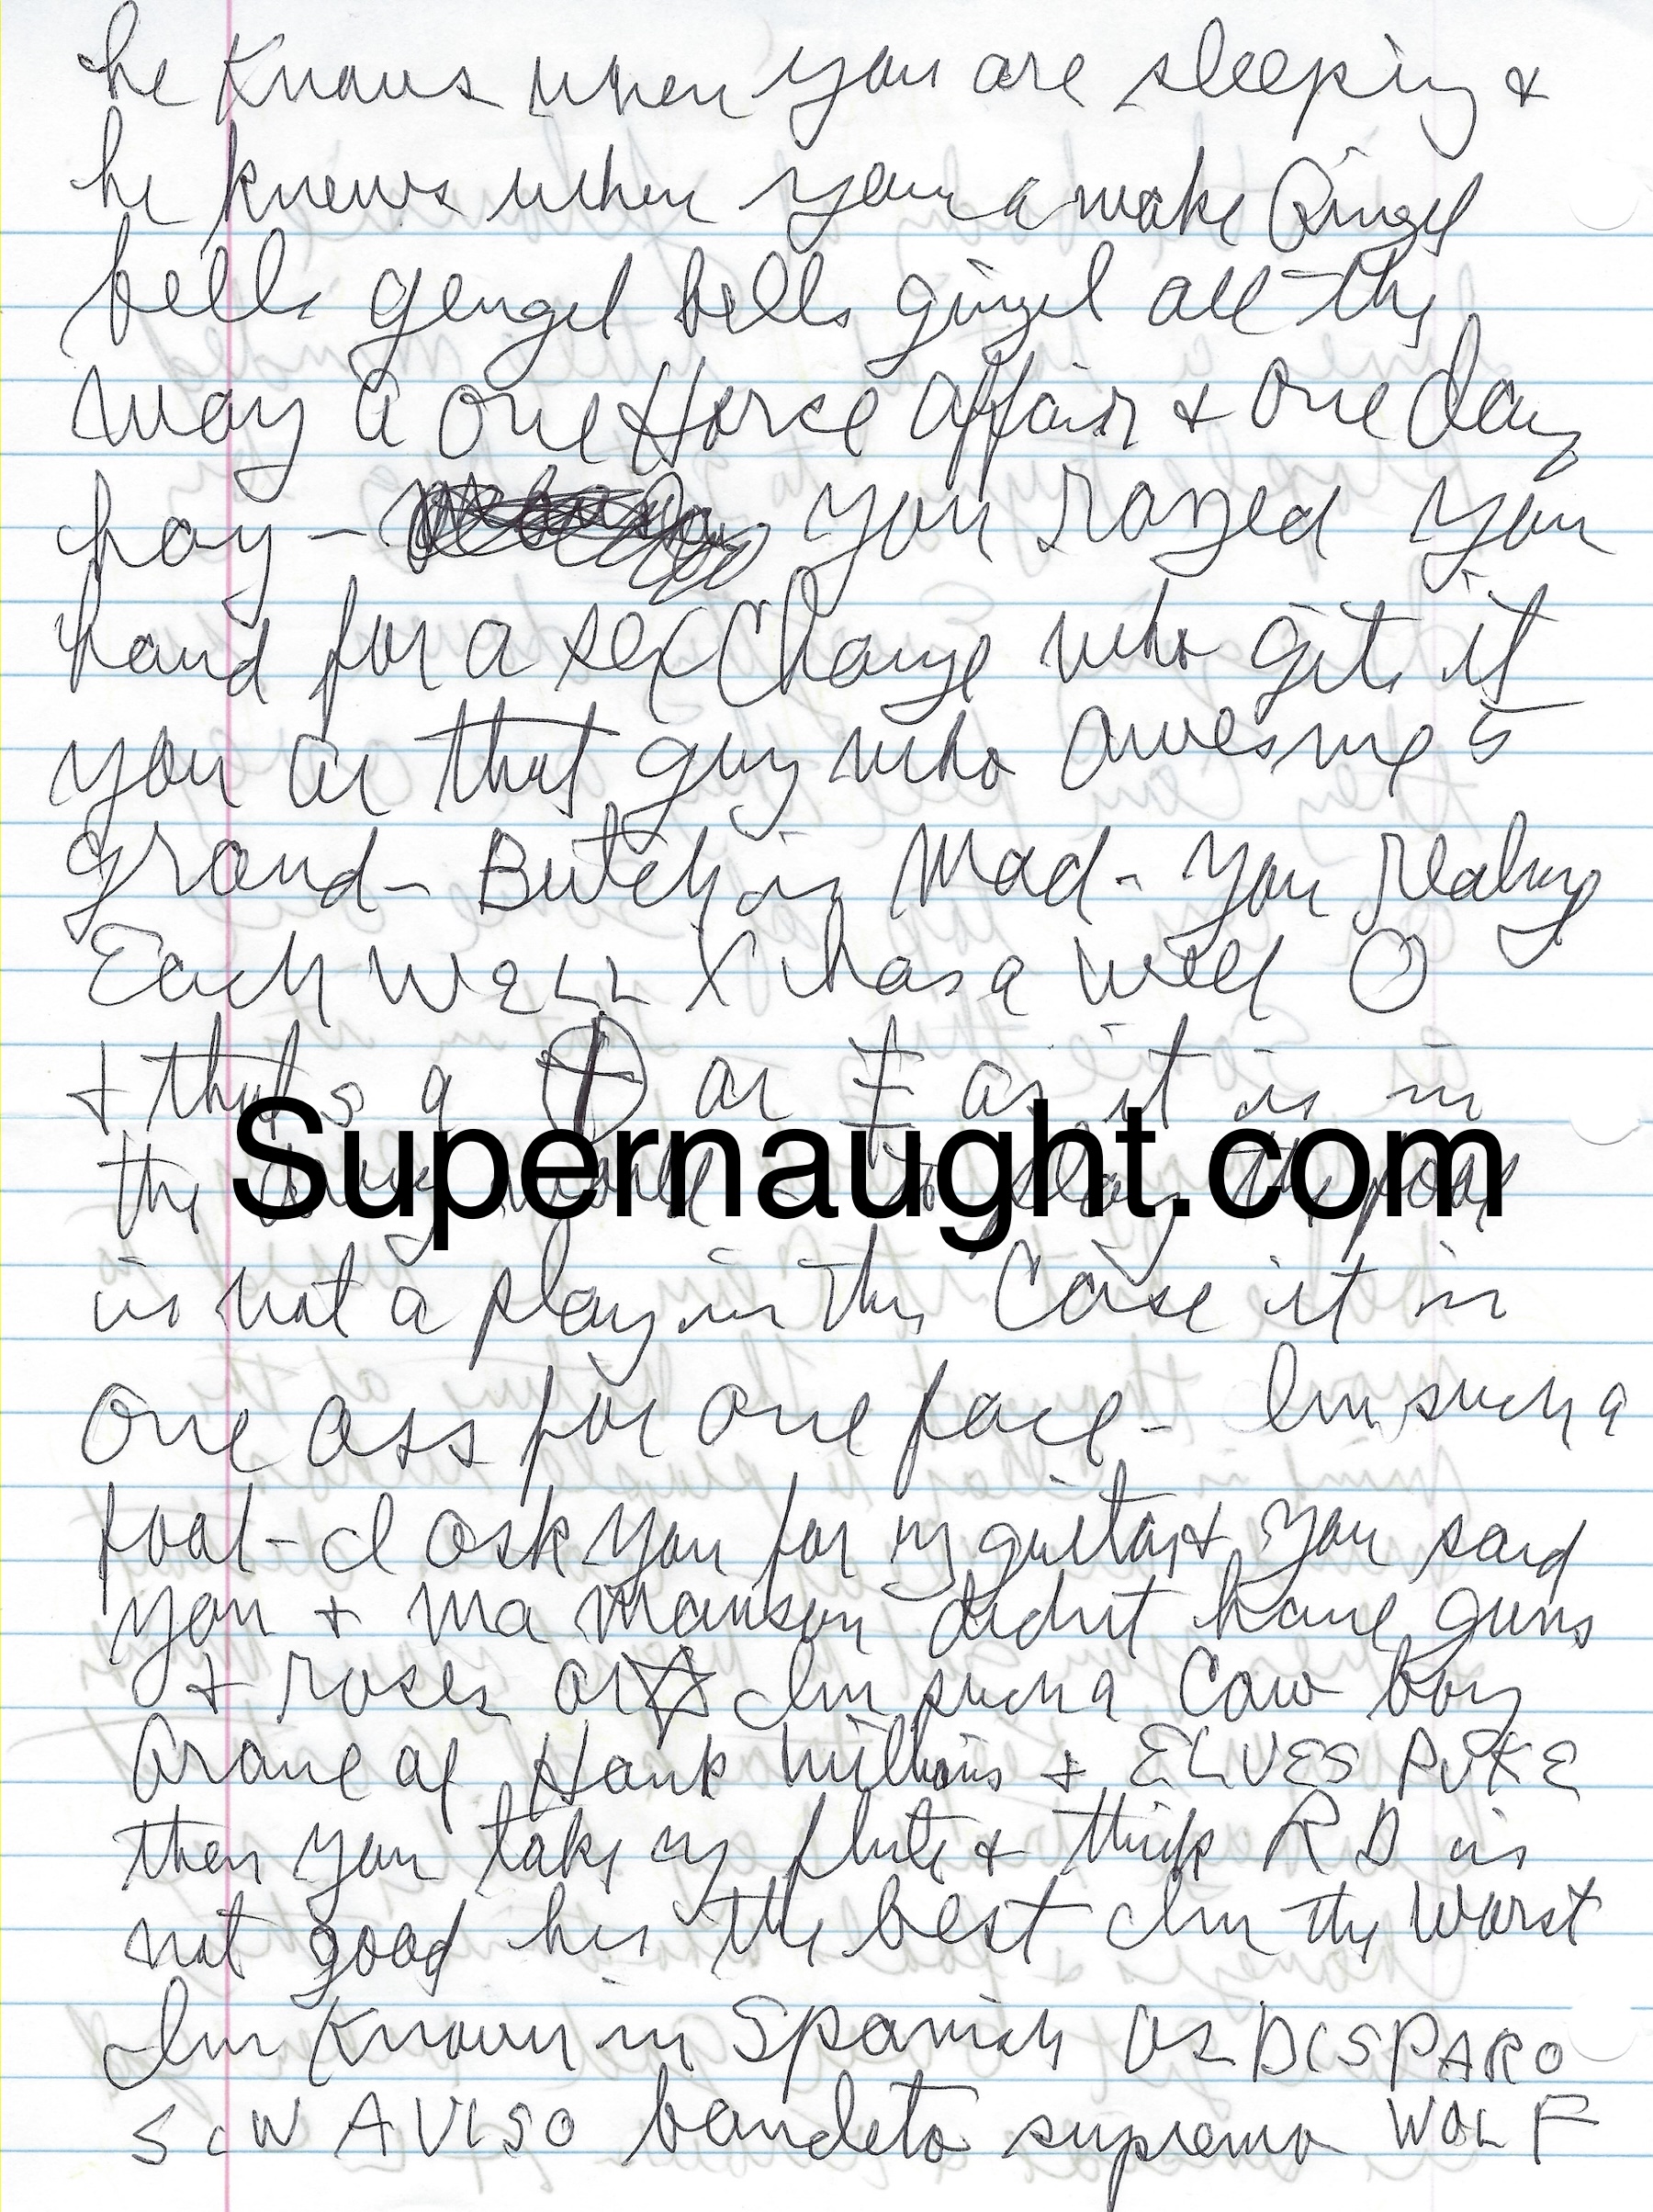 he knows when you are sleeping &
he knews when your a wake Gingel
bells gengel bells gingel all the
way a one Horse affair & one day
hay - you razed you
hand for a sex Change who gits it
you or that guy who awes me 5
grand - Butch is Mad - you realy
Each WELL X has a well O
+ that s a or as it is in
the
Supernaught.com
is not a play in this Case it is
one ass for one face - Im such a
fool - I ask you for my guitar & you said
you + Ma Manson didnt have guns
+ roses or ☆ Im such a Cow boy
of Hank Williams + ELVES PUKE
then you take my flute & think RD is
not good hes the best Im the Worst
Im Known in Spanish as DISPARO
SiN AVISO bandeto supremo WOLF